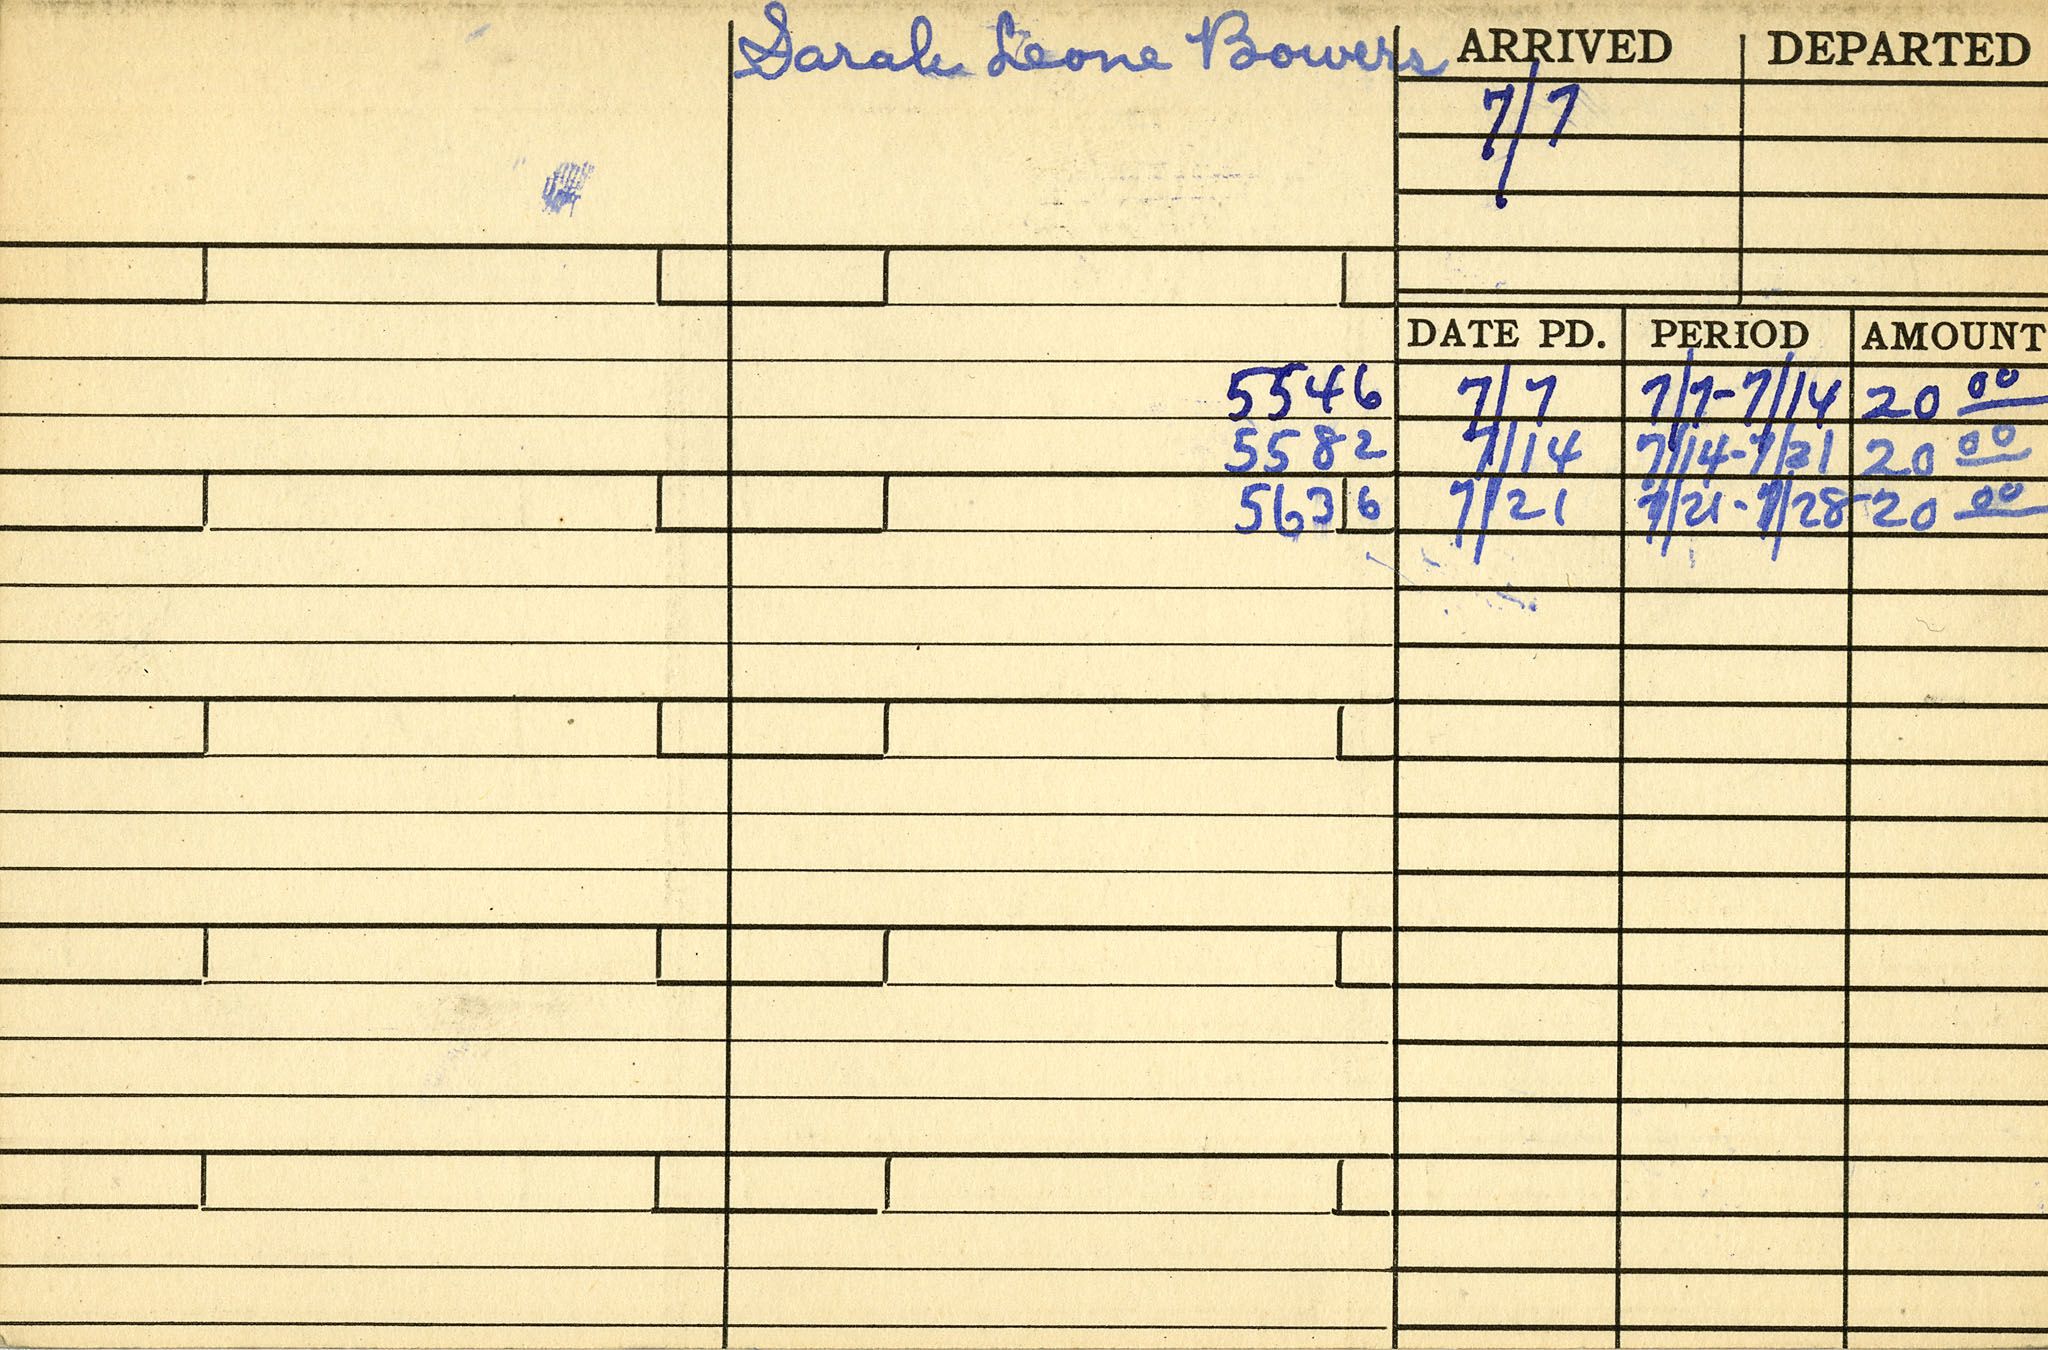 Sarah Leone Bowers ARRIVED DEPARTED
7/7
DATE PD. PERIOD AMOUNT
5546 7/7 7/7-7/14 20 00
5582 7/14 7/14-7/21 20 00
5636 7/21 7/21-7/28 20 00